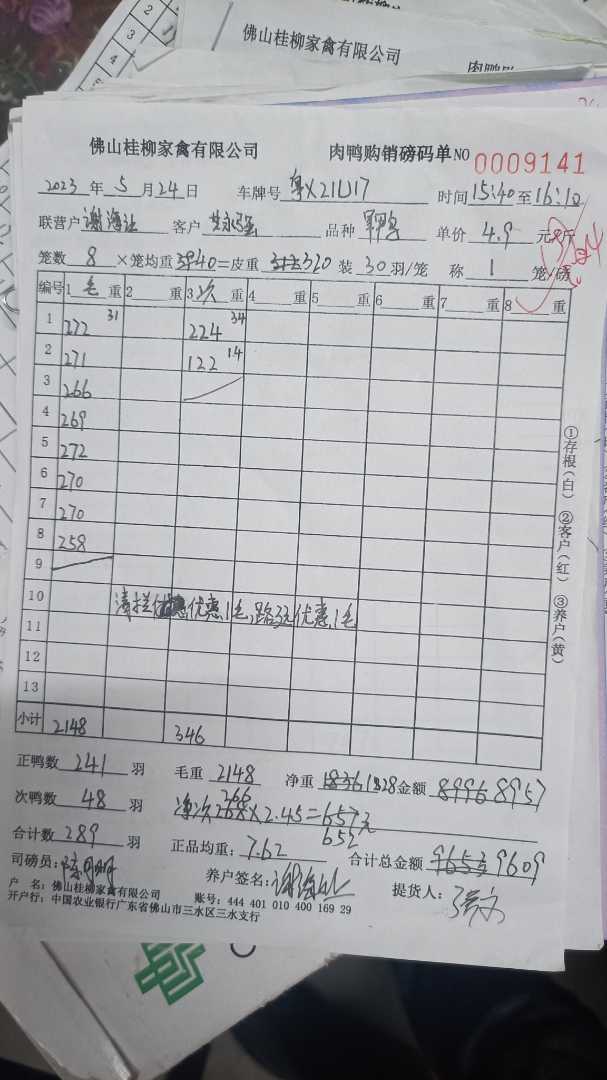 佛山桂柳家禽有限公司
佛山桂柳家禽有限公司 肉鸭购销磅码单 NO 0009141
2023 年 5 月 24 日 车牌号 粤X21U17 时间 15:40 至 16:10
联营户 客户 品种 单价 4.9 元/斤
笼数 8 ×笼均重 40 =皮重 320 装 30 羽/笼 称 1 笼/磅
编号 1 毛 重 2 重 3 次 重 4 重 5 重 6 重 7 重 8 重
1 272 31 224 34
2 271 122 14
3 266
4 269
5 272
6 270
7 270
8 258
9
10 清拦 优惠1毛,路强优惠1毛
11
12
13
小计 2148 346
①存根(白) ②客户(红) ③养户(黄)
正鸭数 241 羽 毛重 2148 净重 1836 1828 金额 8996 8957
次鸭数 48 羽 净次 268 266 × 2.45 = 657元 652
合计数 289 羽 正品均重: 7.62 合计总金额 9653 9609
司磅员: 养户签名: 提货人:
户 名: 佛山桂柳家禽有限公司 账号: 444 401 010 400 169 29
开户行: 中国农业银行广东省佛山市三水区三水支行